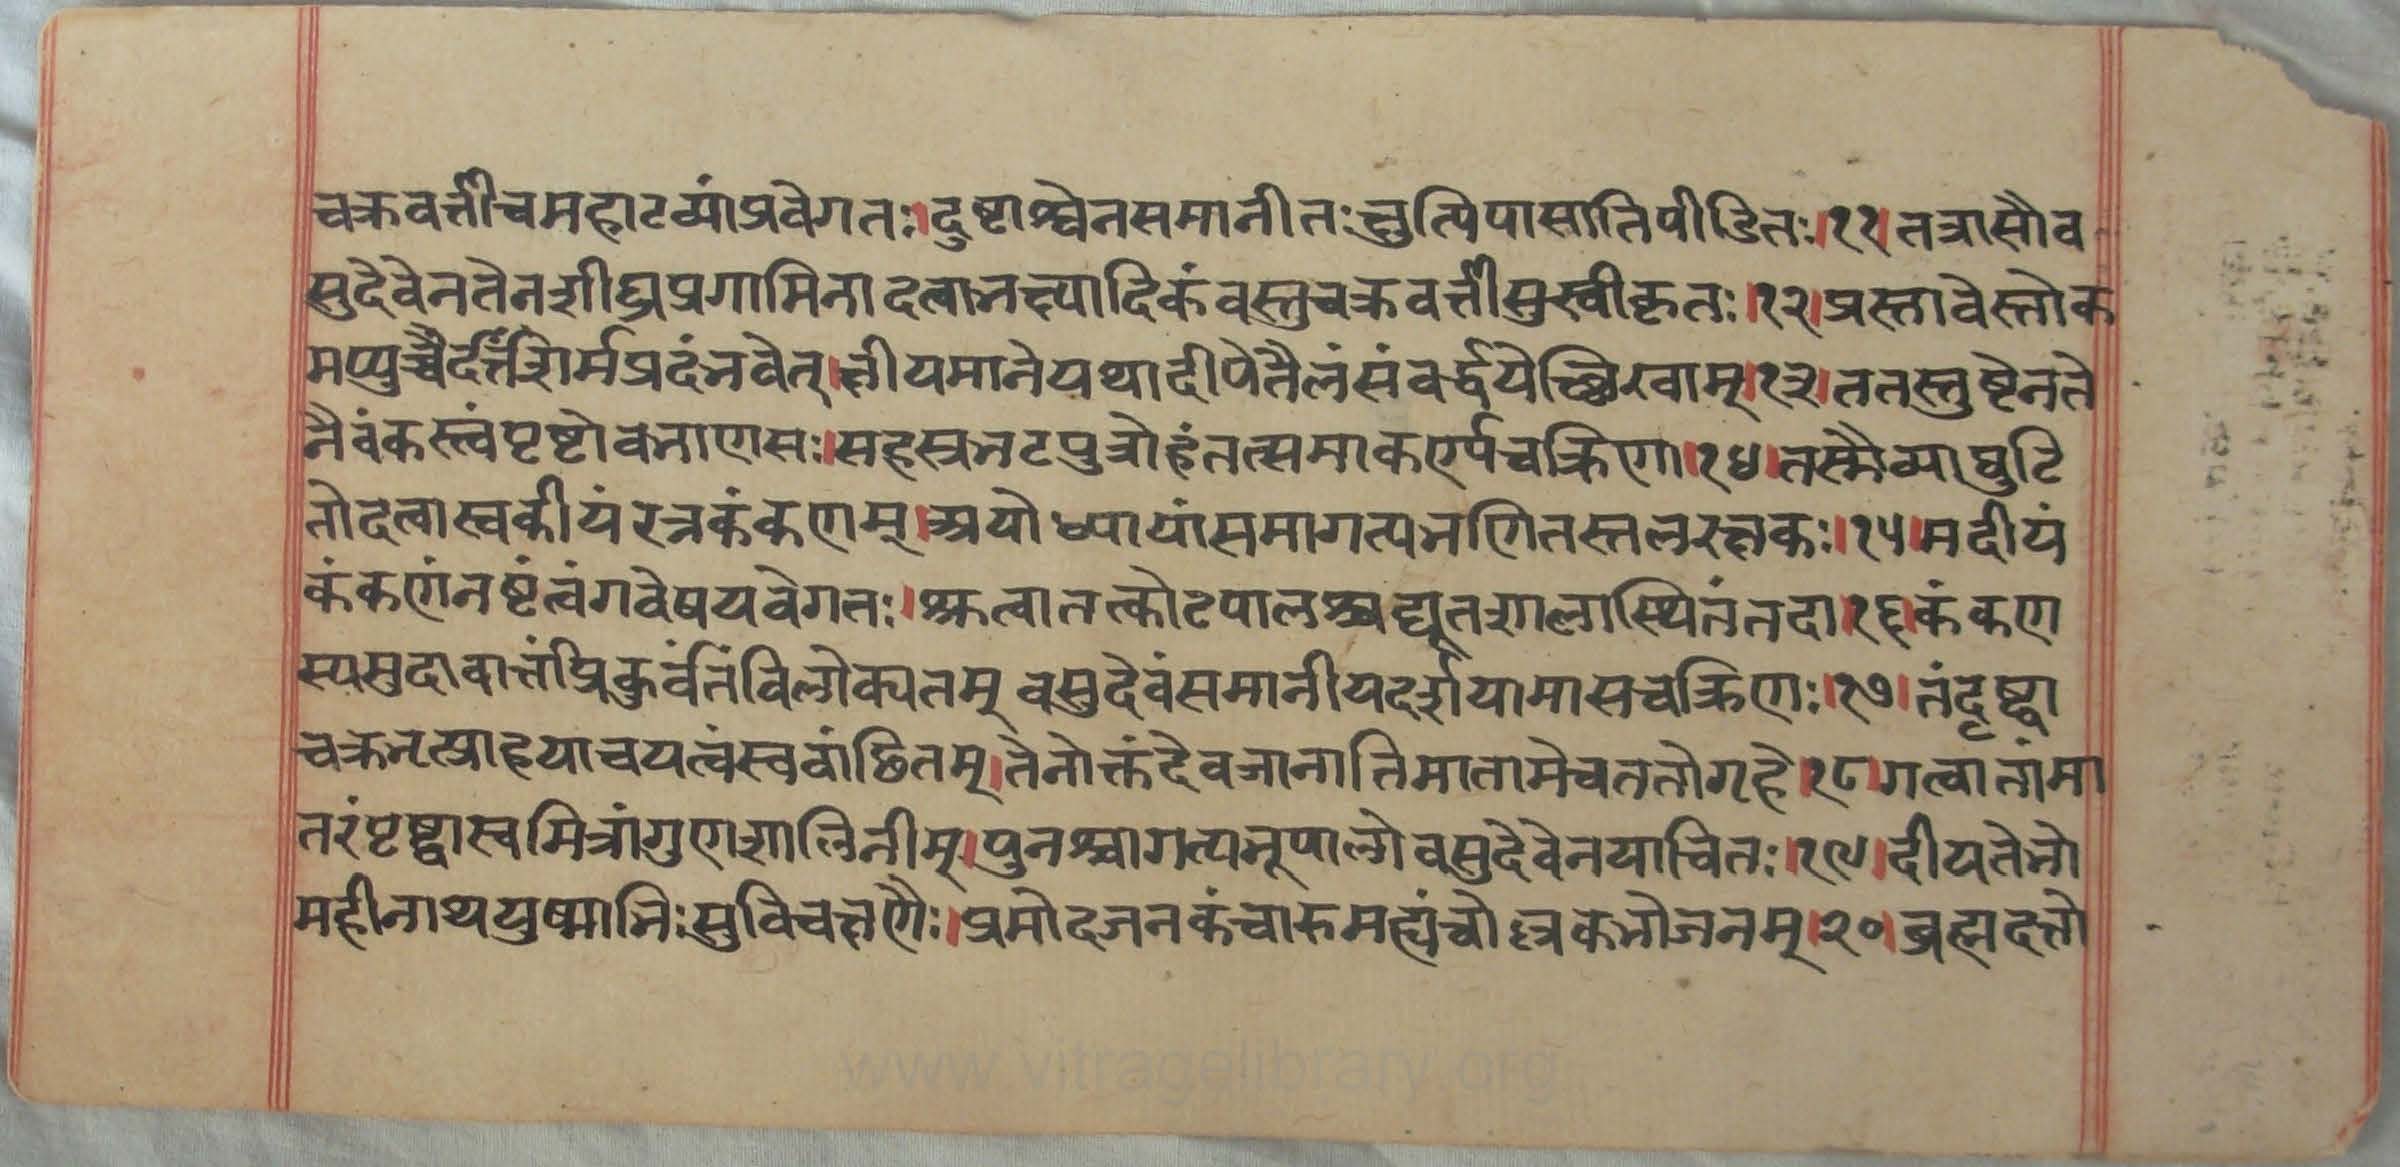 चक्रवर्त्तीचमहाटव्यांप्रवेगतः।दुष्टाश्वेनसमानीतःक्षुत्पिपासातिपीडितः।११।तत्रासौव
सुदेवेनतेनशीघ्रप्रगामिनादत्वाभक्ष्यादिकंवस्तुचक्रवर्त्तीसुस्वीकृतः।१२।प्रस्तावेस्तोक
मप्युच्चैर्दत्तंशर्मप्रदंभवेत्।क्षीयमानेयथादीपेतैलंसंवर्द्धयेच्छिखाम्।१३।ततस्तुष्टेनते
नैवंकस्त्वंपृष्टोबभाणसः।सहस्रभटपुत्रोहंतत्समाकर्ण्यचक्रिणा।१४।तस्मैव्याघुटि
तोदत्वास्वकीयंरत्नकंकणम्।अयोध्यायांसमागत्यभणितस्तलरक्षकः।१५।मदीयं
कंकणंनष्टंत्वंगवेषयवेगतः।श्रुत्वातत्कोटपालश्चद्यूतशालास्थितंतदा।१६।कंकण
स्यमुदावार्त्तांप्रकुर्वंतंविलोक्यतम् वसुदेवंसमानीयदर्शयामासचक्रिणः।१७।तंदृष्ट्वा
चक्रभृत्प्राहयाचयत्वंस्ववांछितम्।तेनोक्तंदेवजानातिमातामेचततोगृहे।१८।गत्वातांमा
तरंपृष्ट्वास्वमित्रांगुणशालिनीम्।पुनश्चागत्यभूपालोवसुदेवेनयाचितः।१९।दीयतेभो
महीनाथयुष्माभिःसुविचक्षणैः।प्रमोदजनकंचारुमह्यंचोल्लकभोजनम्।२०।ब्रह्मदत्तो
www.vitragelibrary.org